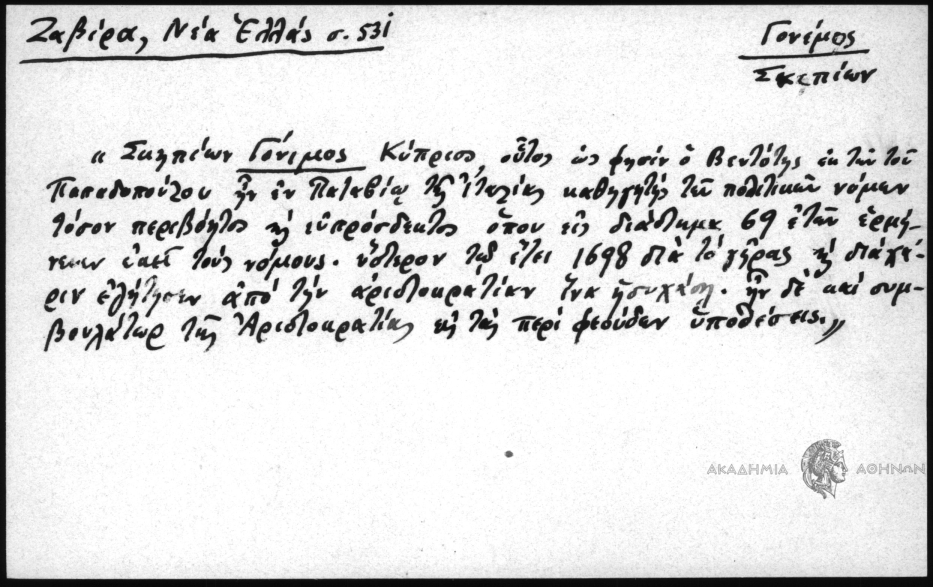 Ζαβίρα, Νέα Ἑλλάς σ. 531
Γονέμος
Σκεπίων
« Σκηπίων Γόνεμος Κύπριος, οὗτος ὡς φησίν ὁ Βεντότης ἐκ τῶν τοῦ
Παπαδοπούλου ἦν ἐν Παταβίῳ τῆς Ἰταλίας καθηγητής τῶν πολιτικῶν νόμων
τόσον περιβόητος κ εὐπρόσδεκτος ὅπου εἰς διάστημα 69 ἐτῶν ἑρμή-
νευεν ἐκεῖ τούς νόμους. ὕστερον τῷ ἔτει 1698 διὰ τὸ γῆρας κ
ριν ἐζήτησεν ἀπό τήν ἀριστοκρατίαν ἵνα ἡσυχάσῃ. ἦν δέ καί συμ-
βουλάτωρ τῆς Ἀριστοκρατίας εἰς τάς περί φεούδων ὑποθέσεις.»
ΑΚΑΔΗΜΙΑ ΑΘΗΝΩΝ